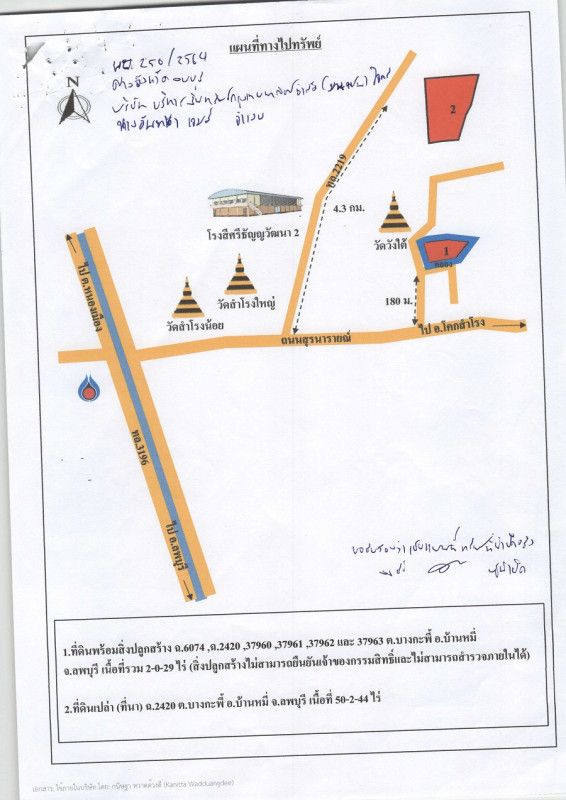 แผนที่ทางไปทรัพย์
ผบ. 250/2564
N
ยอ.2219
4.3 กม.
2
โรงสีศรีธัญญวัฒนา 2
วัดวังใต้
1
คลอง
ไป ต.หนองเมือง
วัดสำโรงใหญ่
วัดสำโรงน้อย
180 ม.
ถนนสุรนารายณ์
ไป อ.โคกสำโรง
ทล.3196
ไป อ.ลพบุรี
1.ที่ดินพร้อมสิ่งปลูกสร้าง ฉ.6074 ,ฉ.2420 ,37960 ,37961 ,37962 และ 37963 ต.บางกะพี้ อ.บ้านหมี่
จ.ลพบุรี เนื้อที่รวม 2-0-29 ไร่ (สิ่งปลูกสร้างไม่สามารถยืนยันเจ้าของกรรมสิทธิ์และไม่สามารถสำรวจภายในได้)
2.ที่ดินเปล่า (ที่นา) ฉ.2420 ต.บางกะพี้ อ.บ้านหมี่ จ.ลพบุรี เนื้อที่ 50-2-44 ไร่
เอกสาร: ใช้ภายในบริษัท โดย: กนิษฐา หวาดด้วงดี (Kanitta Wadduangdee)